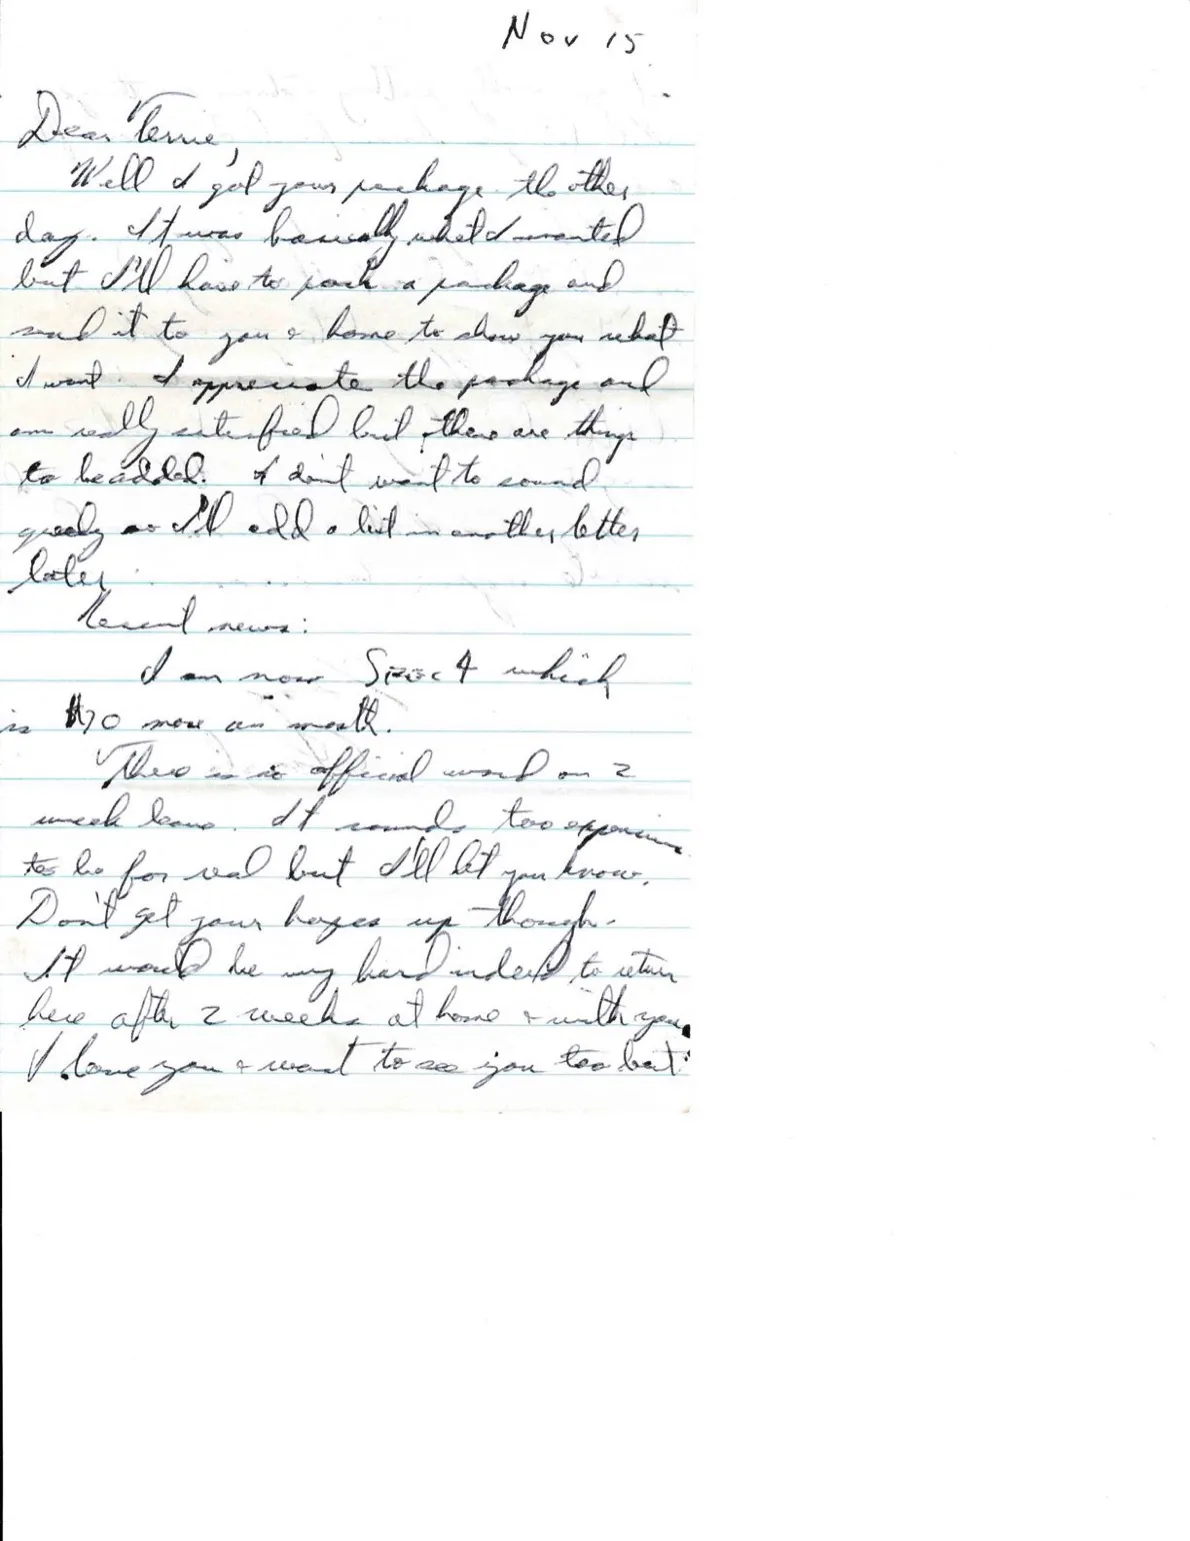 Nov 15
Dear Terrie,
Well I got your package the other
day. It was basically what I wanted
but I'll have to pack a package and
send it to you & home to show you what
I want. I appreciate the package and
am really satisfied but there are things
to be added. I don't want to sound
greedy so I'll add a list in another letter
later
Recent news:
I am now Spec 4 which
is $70 more a month.
There is no official word on 2
week leave. It sounds too expensive
to be for real but I'll let you know.
Don't get your hopes up though.
It would be very hard indeed to return
here after 2 weeks at home & with you.
I love you & want to see you too but